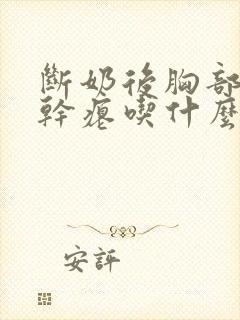 斷奶後胸部
幹癟喫什麽
安評